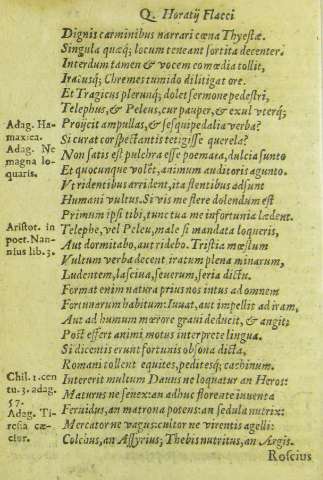 Q. Horatij Flacci
Dignis carminibus narrari cœna Thyestæ.
Singula quæq; locum teneant sortita decenter.
Interdum tamen & vocem comœdia tollit,
Iratusq; Chremes tumido dilitigat ore.
Et Tragicus plerunq; dolet sermone pedestri,
Telephus, & Peleus, cur pauper, & exul vterq;
Adag. Ha-
maxica.
Proijcit ampullas, & sesquipedalia verba?
Si curat cor spectantis tetigisse querela?
Adag. Ne
magna lo-
quaris.
Non satis est pulchra esse poemata, dulcia sunto
Et quocunque volēt, animum auditoris agunto.
Vt ridentibus arrident, ita flentibus adsunt
Humani vultus. Si vis me flere dolendum est
Primum ipsi tibi, tunc tua me infortunia lædent.
Aristot. in
poet. Nan-
nius lib. 3.
Telephe, vel Peleu, male si mandata loqueris,
Aut dormitabo, aut ridebo. Tristia mœstum
Vultum verba decent iratum plena minarum,
Ludentem, lasciua, seuerum, seria dictu.
Format enim natura prius nos intus ad omnem
Fortunarum habitum: Iuuat, aut impellit ad iram,
Aut ad humum mœrore graui deducit, & angit:
Post effert animi motus interprete lingua.
Si dicentis erunt fortunis absona dicta,
Romani tollent equites, peditesq; cachinum.
Chil. 1. cen
tu. 3. adag.
57.
Intererit multum Dauus ne loquatur an Heros:
Maturus ne senex: an adhuc florente iuuenta
Adag. Ti-
resia cæ-
cior.
Feruidus, an matrona potens: an sedula nutrix:
Mercator ne vagus: cultor ne virentis agelli:
Colchus, an Assyrius; Thebis nutritus, an Argis.
Roscius